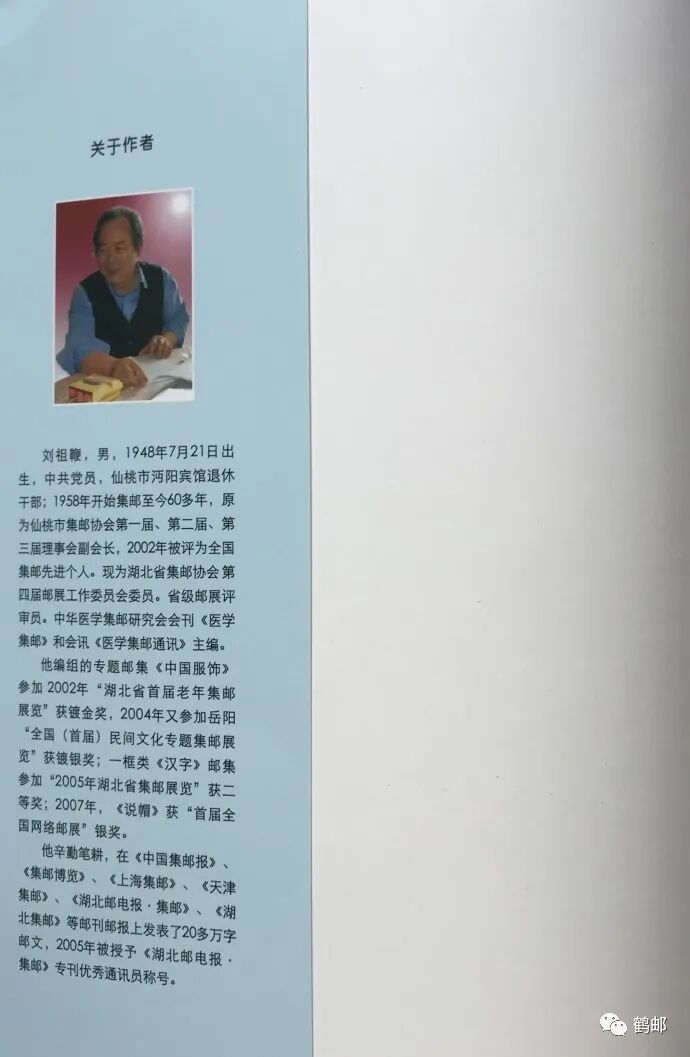 关于作者
刘祖鞭，男，1948年7月21日出
生，中共党员，仙桃市沔阳宾馆退休
干部；1958年开始集邮至今60多年，原
为仙桃市集邮协会第一届、第二届、第
三届理事会副会长，2002年被评为全国
集邮先进个人。现为湖北省集邮协会第
四届邮展工作委员会委员。省级邮展评
审员。中华医学集邮研究会会刊《医学
集邮》和会讯《医学集邮通讯》主编。
他编组的专题邮集《中国服饰》
参加2002年“湖北省首届老年集邮
展览”获镀金奖，2004年又参加岳阳
“全国（首届）民间文化专题集邮展
览”获镀银奖；一框类《汉字》邮集
参加“2005年湖北省集邮展览”获二
等奖；2007年，《说帽》获“首届全
国网络邮展”银奖。
他辛勤笔耕，在《中国集邮报》、
《集邮博览》、《上海集邮》、《天津
集邮》、《湖北邮电报·集邮》、《湖
北集邮》等邮刊邮报上发表了20多万字
邮文，2005年被授予《湖北邮电报·
集邮》专刊优秀通讯员称号。
鹤邮